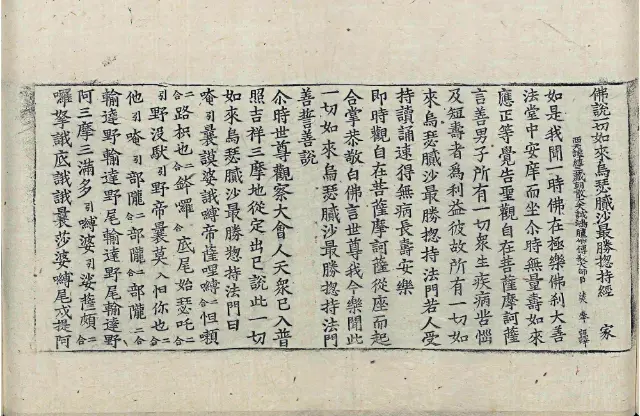 佛說一切如來烏瑟膩沙最勝揔持經 家
西天譯經三藏朝散大夫試鴻臚少卿傳教大師臣法賢奉 詔譯
如是我聞一時佛在極樂佛刹大善
法堂中安庠而坐尒時無量壽如來
應正等覺告聖觀自在菩薩摩訶薩
言善男子所有一切衆生疾病苦惱
及短壽者爲利益彼故所有一切如
來烏瑟膩沙最勝揔持法門若人受
持讀誦速得無病長壽安樂
即時觀自在菩薩摩訶薩從座而起
合掌恭敬白佛言世尊我今樂聞此
一切如來烏瑟膩沙最勝揔持法門
善哉善說
尒時世尊觀察大會人天衆已入普
照吉祥三摩地從定出已說此一切
如來烏瑟膩沙最勝揔持法門曰
唵引曩謨婆誐嚩帝薩哩嚩二合怛賴
二合路枳也二合鉢囉二合底尾始瑟吒二合
引野沒馱引野帝曩莫入怛你也二合
他引唵引部隴二合部隴二合部隴二合
輸達野輸達野尾輸達野尾輸達野
阿三摩三滿多引嚩婆引娑薩頗二合
囉拏誐底誐誐曩莎婆嚩尾戍提阿